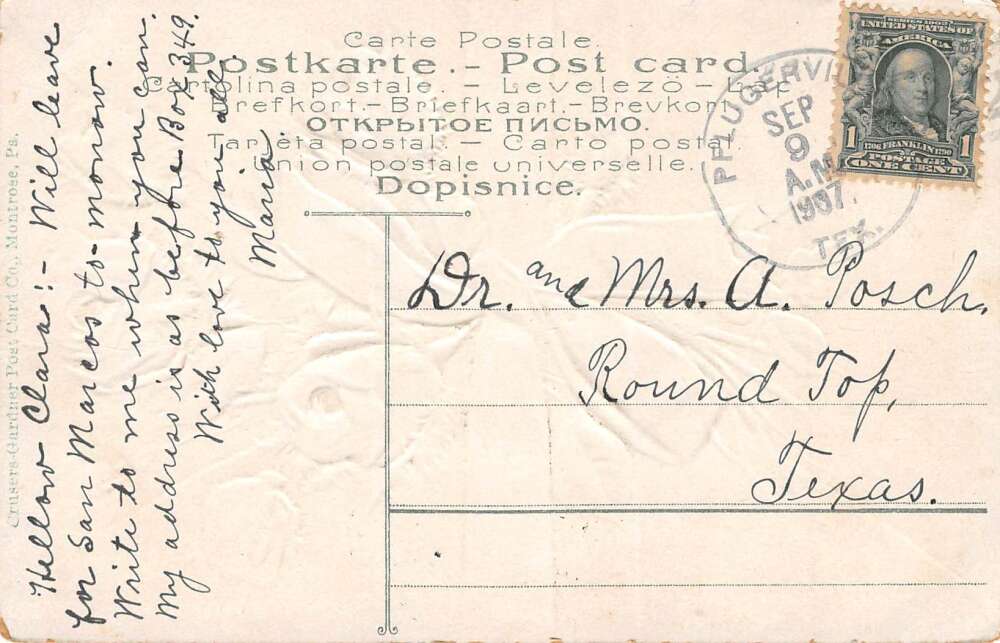 Carte Postale.
Postkarte. - Post card.
Cartolina postale. - Levelező - Lap
Brefkort. - Briefkaart. - Brevkort
ОТКРЫТОЕ ПИСЬМО.
Tarjeta postal. - Carto postal.
Union postale universelle.
Dopisnice.
PFLUGERVIL
SEP
9
A.M.
1907.
TEX.
SERIES 1902
UNITED STATES OF
AMERICA
1 1
1706 FRANKLIN 1790
POSTAGE
ONE CENT
Dr. and Mrs. A. Posch,
Round Top,
Texas.
Hellow Clara! - Will leave
for San Marcos to-morrow.
Write to me when you can.
My address is as before Box 349.
With love to you all.
Maria
Crusers-Gardner Post Card Co., Montrose, Pa.